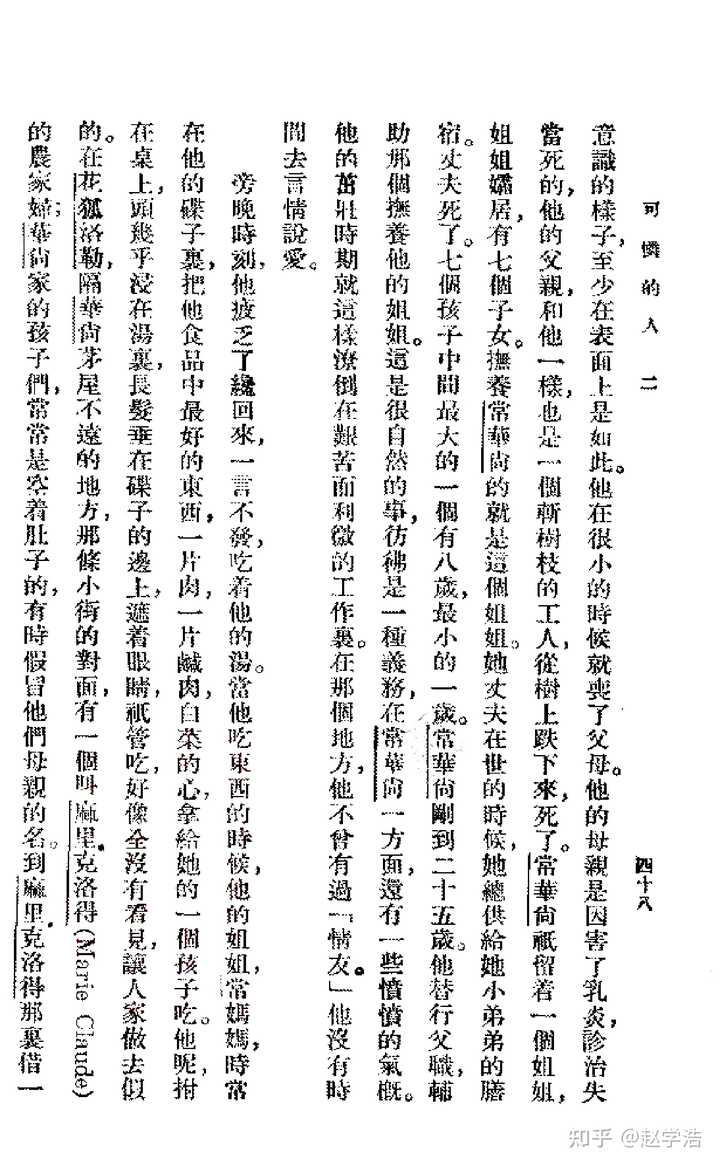 可憐的人 二
四十八
意識的樣子，至少在表面上是如此。他在很小的時候就喪了父母。他的母親是因害了乳炎，診治失
當死的，他的父親，和他一樣，也是一個斬樹枝的工人，從樹上跌下來，死了。常華尚祇留着一個姐姐，
姐姐孀居，有七個子女。撫養常華尚的就是這個姐姐。她丈夫在世的時候，她總供給她小弟弟的膳
宿。丈夫死了。七個孩子中間最大的一個有八歲，最小的一歲。常華尚剛到二十五歲。他替行父職，輔
助那個撫養他的姐姐。這是很自然的事，彷彿是一種義務，在常華尚一方面，還有一些憤憤的氣概。
他的茁壯時期就這樣潦倒在艱苦而利微的工作裏。在那個地方，他不曾有過「情友。」他沒有時
間去言情說愛。
旁晚時刻，他疲乏了纔回來，一言不發，吃着他的湯。當他吃東西的時候，他的姐姐，常媽媽，時常
在他的碟子裏，把他食品中最好的東西，一片肉，一片鹹肉，白菜的心，拿給她的一個孩子吃。他呢，拊
在桌上，頭幾乎浸在湯裏，長髮垂在碟子的邊上，遮着眼睛，祇管吃，好像全沒有看見，讓人家做去似
的。在花狐洛勒，隔華尚茅屋不遠的地方，那條小街的對面，有一個叫麻里克洛得(Marie Claude)
的農家婦；華尚家的孩子們，常常是空着肚子的，有時假冒他們母親的名。到麻里克洛得那裏借一
知乎 @赵学浩